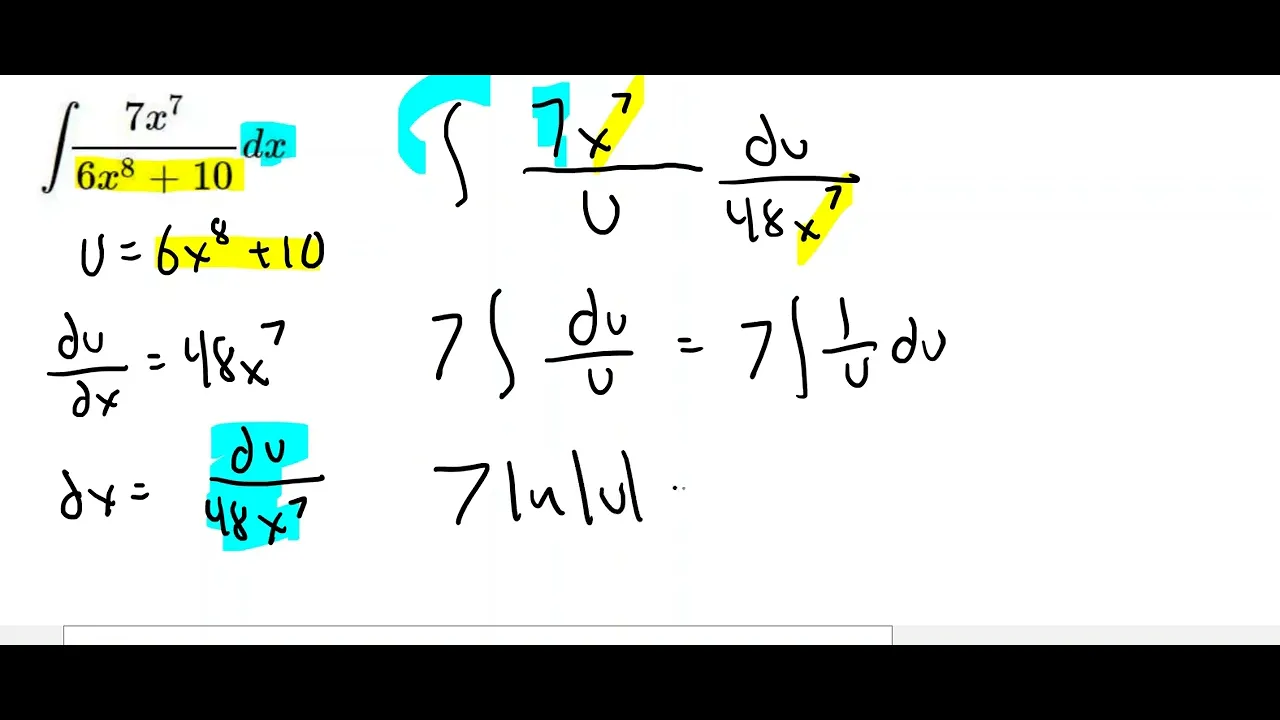 ∫ 7x⁷ / (6x⁸ + 10) dx
U = 6x⁸ + 10
du/dx = 48x⁷
dx = du/48x⁷
∫ 7x⁷/U du/48x⁷
7 ∫ du/U = 7 ∫ 1/U du
7 ln|U|